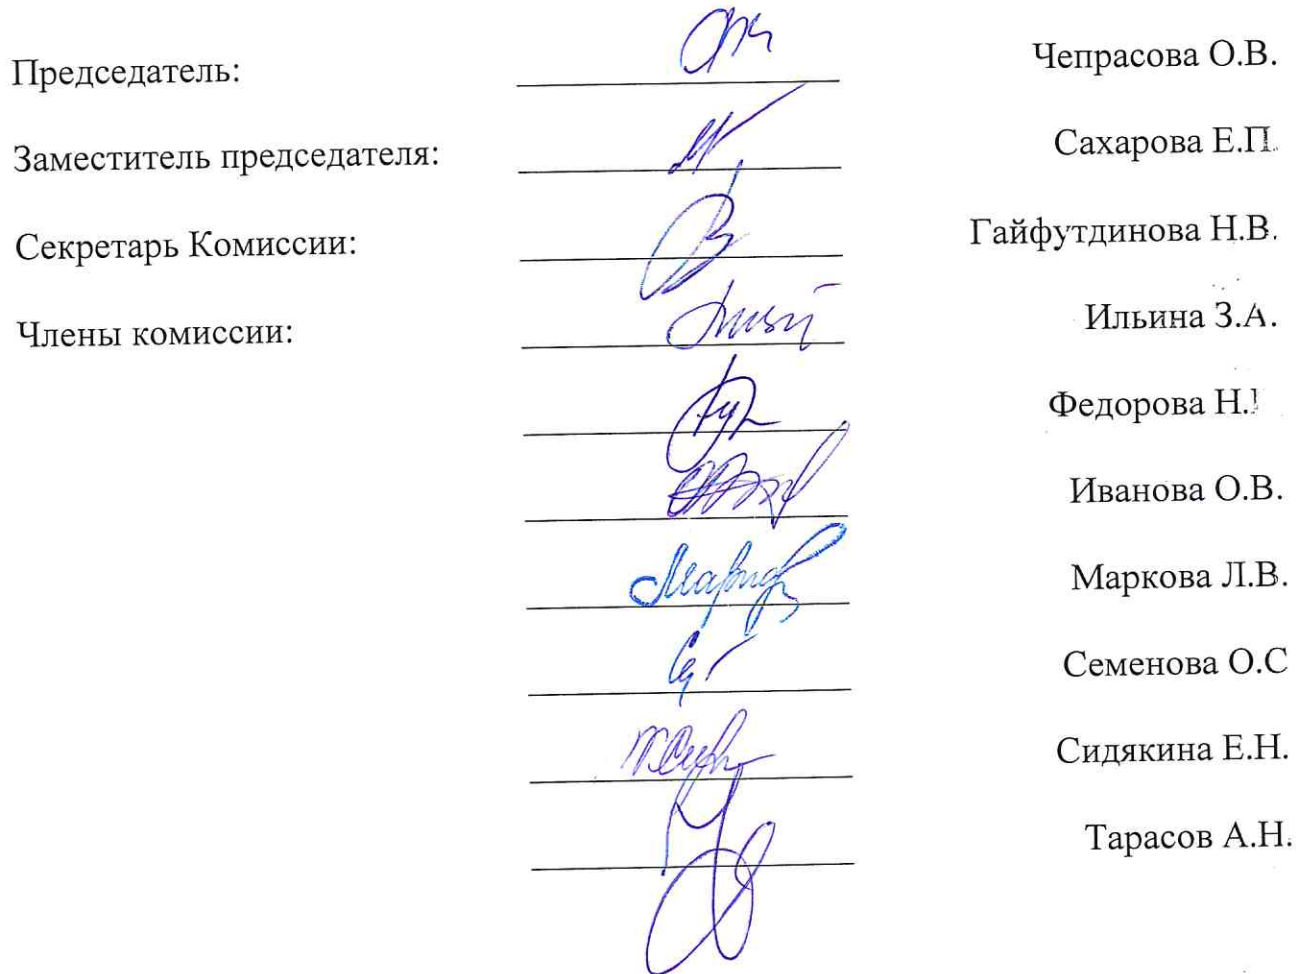 Председатель: Чепрасова О.В.
Заместитель председателя: Сахарова Е.П.
Секретарь Комиссии: Гайфутдинова Н.В.
Члены комиссии: Ильина З.А.
Федорова Н.
Иванова О.В.
Маркова Л.В.
Семенова О.С
Сидякина Е.Н.
Тарасов А.Н.